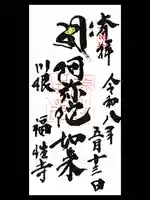 奉拝
令和八年
五月十三日
阿弥陀如来
川根
福性寺